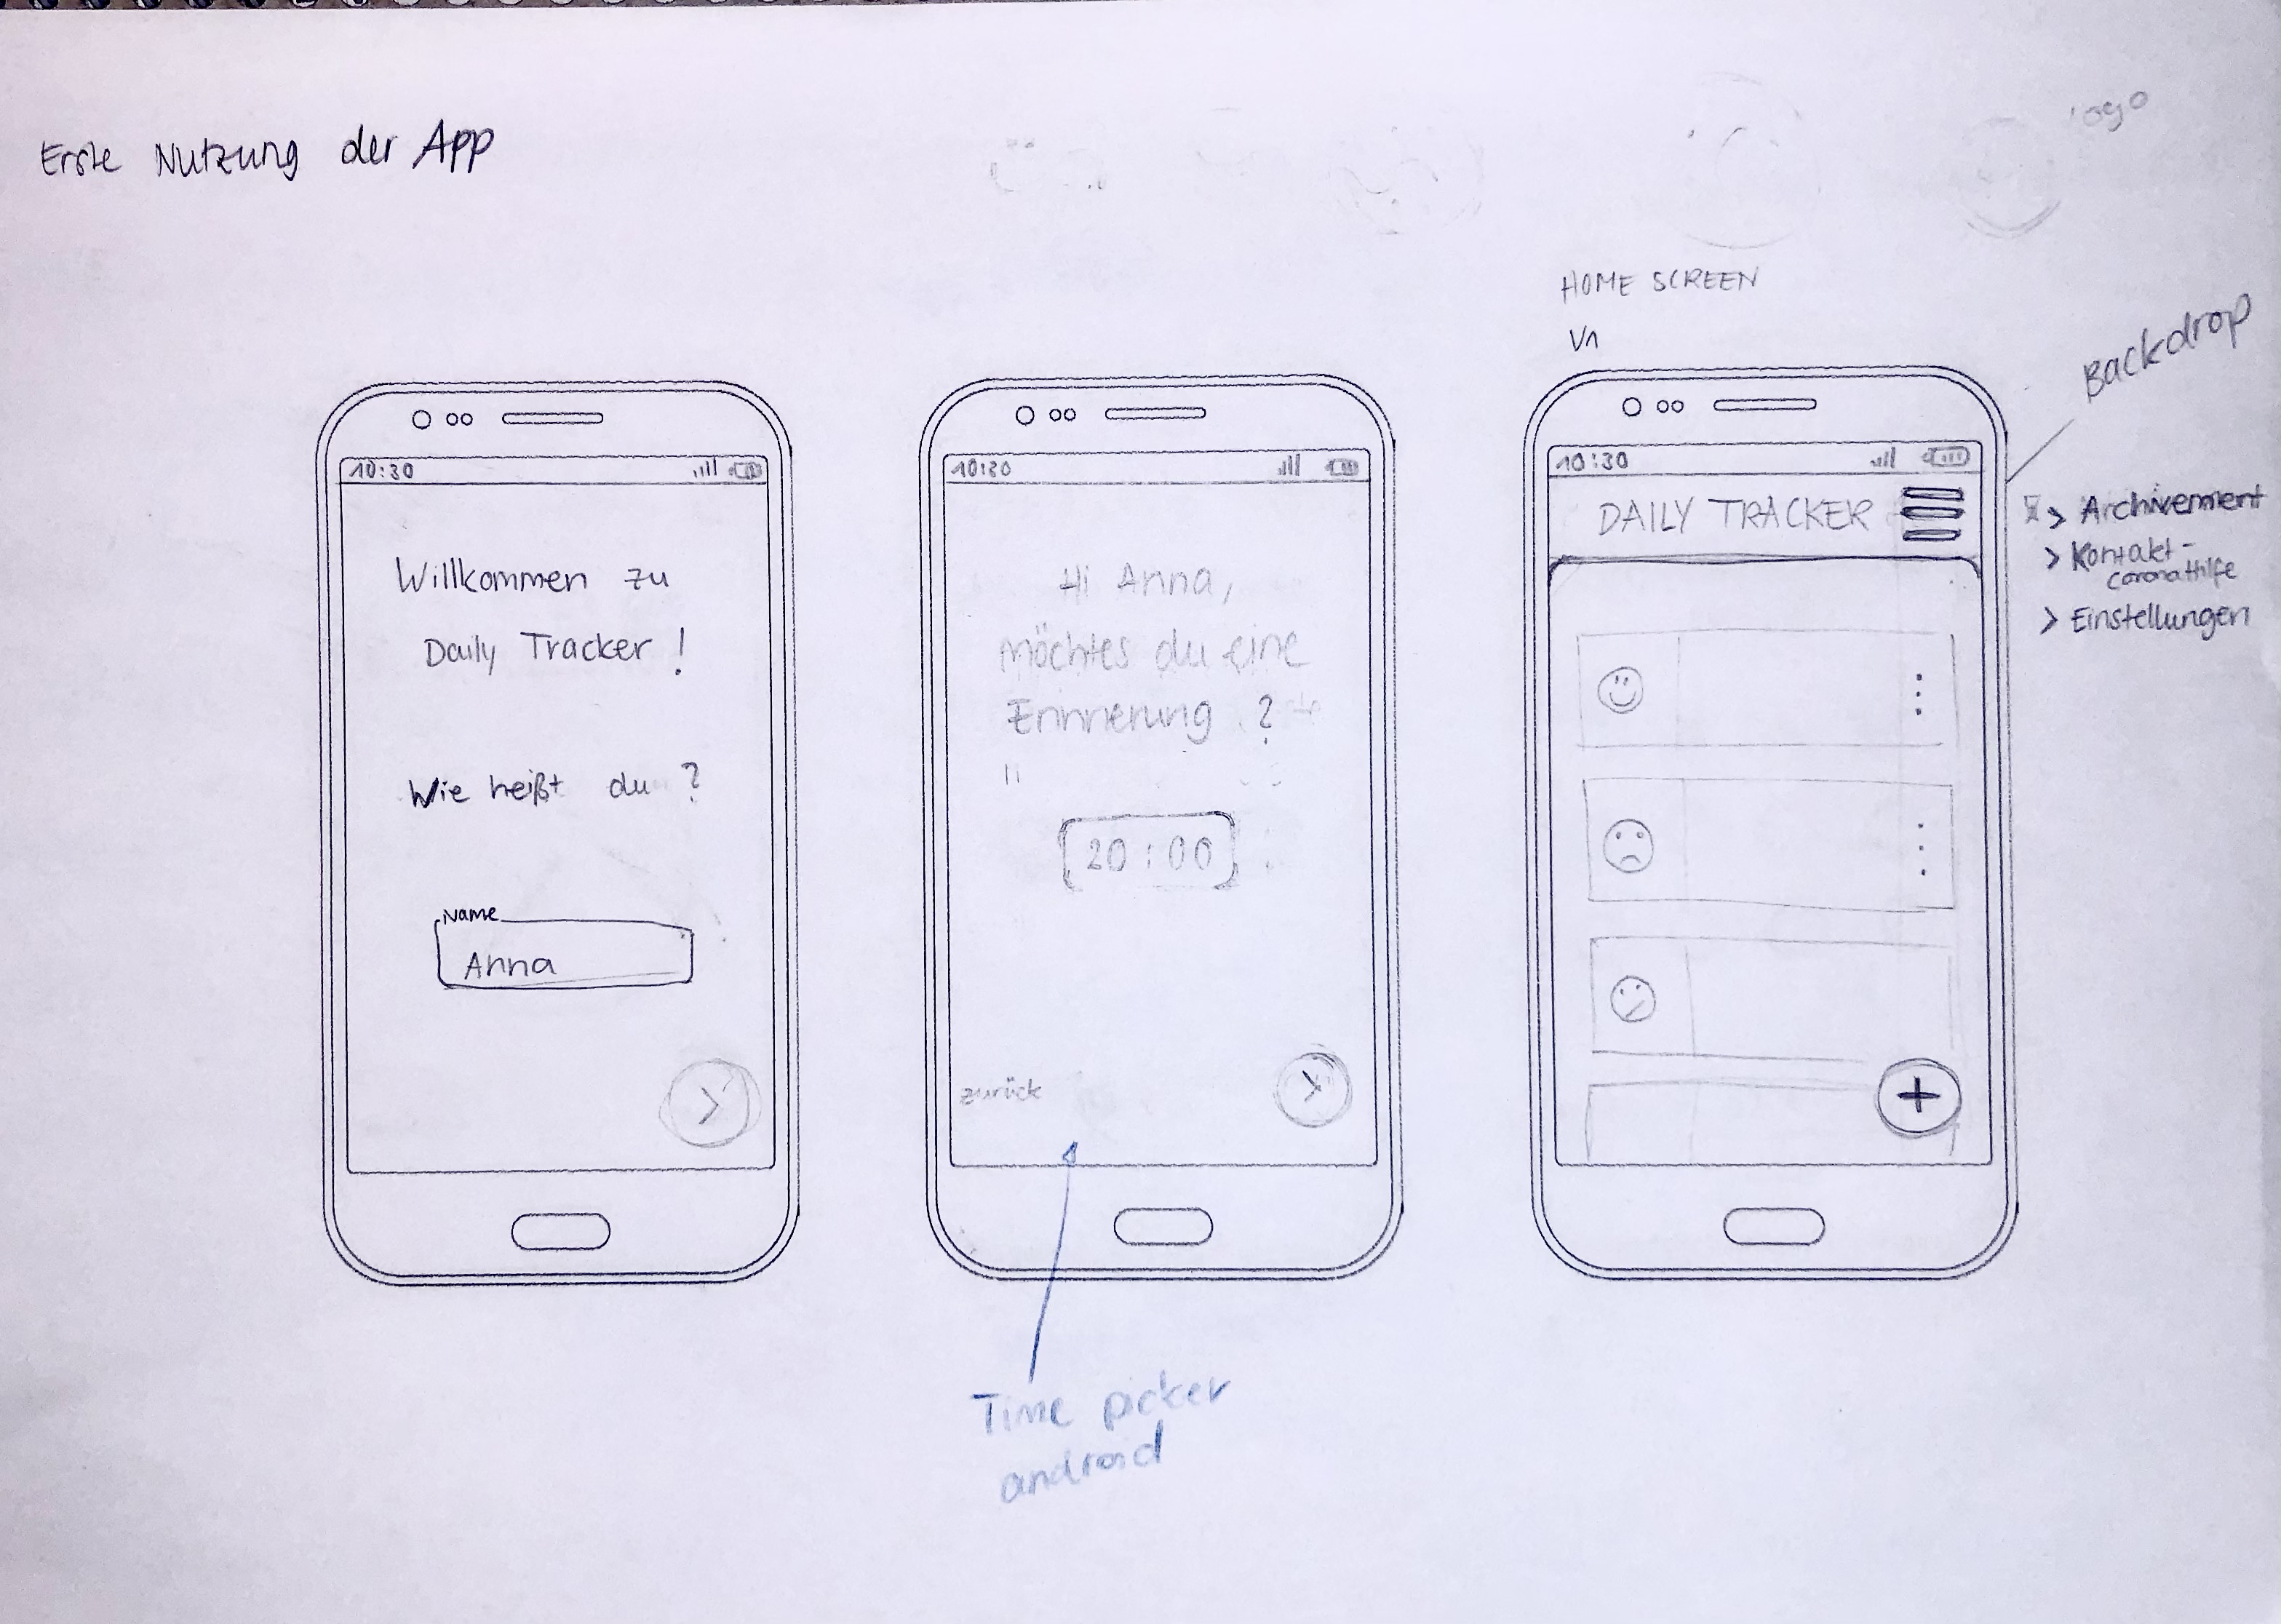 Erste Nutzung der App
HOME SCREEN
V1
Backdrop
10:30
Willkommen zu
Daily Tracker !
Wie heißt du ?
Name
Anna
>
10:30
Hi Anna,
Möchtes du eine
Erinnerung ?
20:00
zurück
>
Time picker
android
10:30
DAILY TRACKER
+
> Archivement
> Kontakt-
> Einstellungen